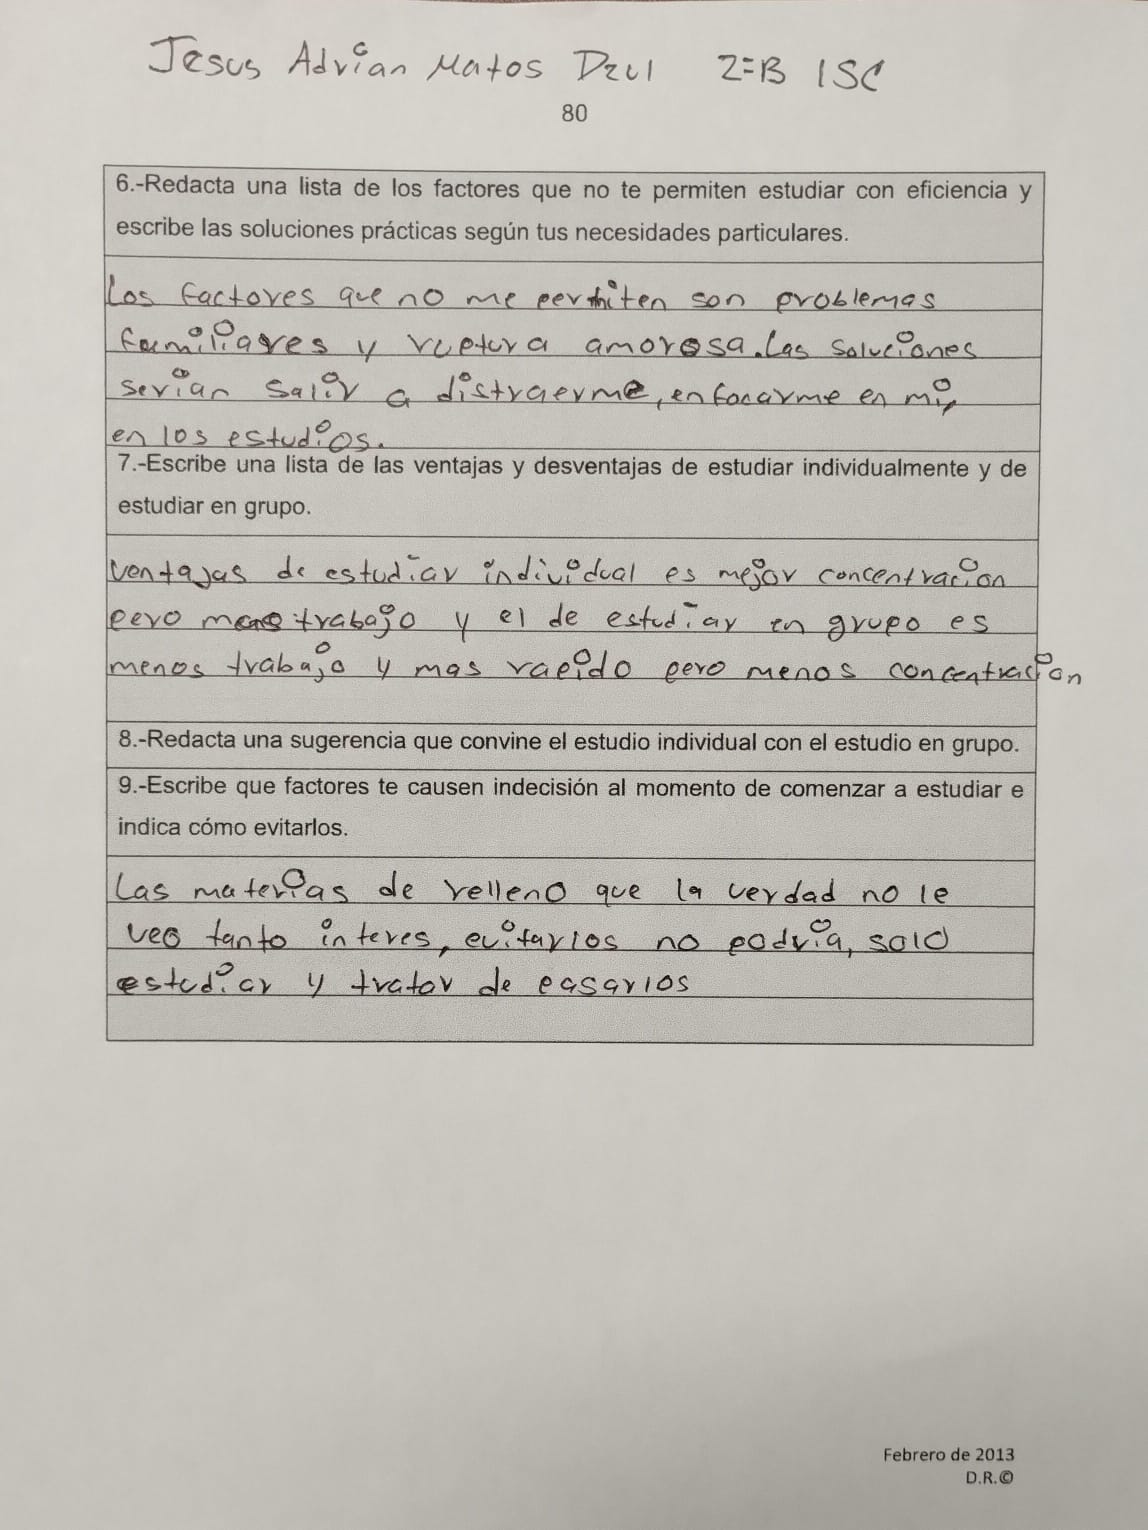 Jesus Adrian Matos Dzul 2=B ISC
80
6.-Redacta una lista de los factores que no te permiten estudiar con eficiencia y
escribe las soluciones prácticas según tus necesidades particulares.
Los factores que no me permiten son problemas
familiares y ruptura amorosa. Las soluciones
serian salir a distraerme, enfocarme en mi,
en los estudios.
7.-Escribe una lista de las ventajas y desventajas de estudiar individualmente y de
estudiar en grupo.
ventajas de estudiar individual es mejor concentracion
pero trabajo y el de estudiar en grupo es
menos trabajo y mas rapido pero menos concentracion
8.-Redacta una sugerencia que convine el estudio individual con el estudio en grupo.
9.-Escribe que factores te causen indecisión al momento de comenzar a estudiar e
indica cómo evitarlos.
Las materias de relleno que la verdad no le
veo tanto interes, evitarlos no podria, solo
estudiar y tratar de pasarlos
Febrero de 2013
D.R.©